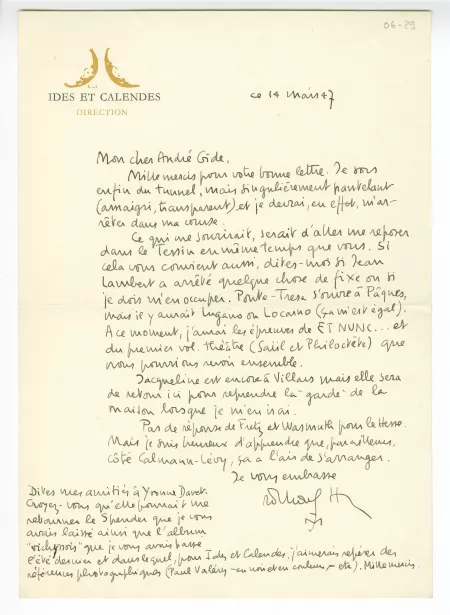 06-29
IDES ET CALENDES
DIRECTION
ce 14 mars 47
Mon cher André Gide,
Mille mercis pour votre bonne lettre. Je sors
enfin du tunnel, mais singulièrement pantelant
(amaigri, transparent) et je devrai, en effet, m'ar-
rêter dans ma course.
Ce qui me sourirait, serait d'aller me reposer
dans le Tessin en même temps que vous. Si
cela vous convient aussi, dites-moi si Jean
Lambert a arrêté quelque chose de fixe ou si
je dois m'en occuper. Ponte-Tresa s'ouvre à Pâques,
mais il y aurait Lugano ou Locarno (ça m'est égal).
A ce moment, j'aurai les épreuves de ET NUNC... et
du premier vol. théâtre (Saül et Philoctète) que
nous pourrions revoir ensemble.
Jacqueline est encore à Villars mais elle sera
de retour ici pour reprendre la "garde" de la
maison lorsque je m'en irai.
Pas de réponse de Fretz et Wasmuth pour le Hesse.
Mais je suis heureux d'apprendre que, par ailleurs,
côté Calmann-Lévy, ça a l'air de s'arranger.
Je vous embrasse
Dites mes amitiés à Yvonne Davet.
Croyez-vous qu'elle pourrait me
retourner le Spender que je vous
avais laissé ainsi que l'album
"vichyssois" que je vous avais passé
l'été dernier et dans lequel, pour Ides et Calendes, j'aimerais repérer des
références photographiques (Paul Valéry - en noir et en couleurs - etc). Mille mercis.